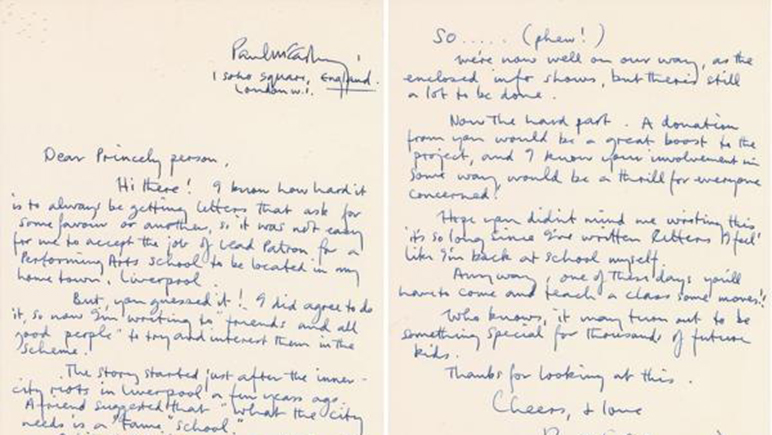 Paul McCartney
1 Soho Square, England.
London W.1.
Dear Princely person,
Hi there! I know how hard it
is to always be getting letters that ask for
some favour or another, so it was not easy
for me to accept the job of Lead Patron for a
Performing Arts School to be located in my
home town, Liverpool.
But, you guessed it! I did agree to do
it, so now I'm writing to "friends and all
good people" to try and interest them in the
scheme.
The story started just after the inner-
city riots in Liverpool a few years ago.
A friend suggested that "what the city
needs is a 'Fame' school."
SO..... (phew!)
We're now well on our way, as the
enclosed info shows, but there's still
a lot to be done.
Now the hard part. A donation
from you would be a great boost to the
project, and I know your involvement in
some way, would be a thrill for everyone
concerned.
Hope you didn't mind me writing this
it's so long since I've written letters I feel
like I'm back at school myself.
Anyway, one of these days you'll
have to come and teach a class some moves!!
Who knows, it may turn out to be
something special for thousands of future
kids.
Thanks for looking at this.
Cheers, & love